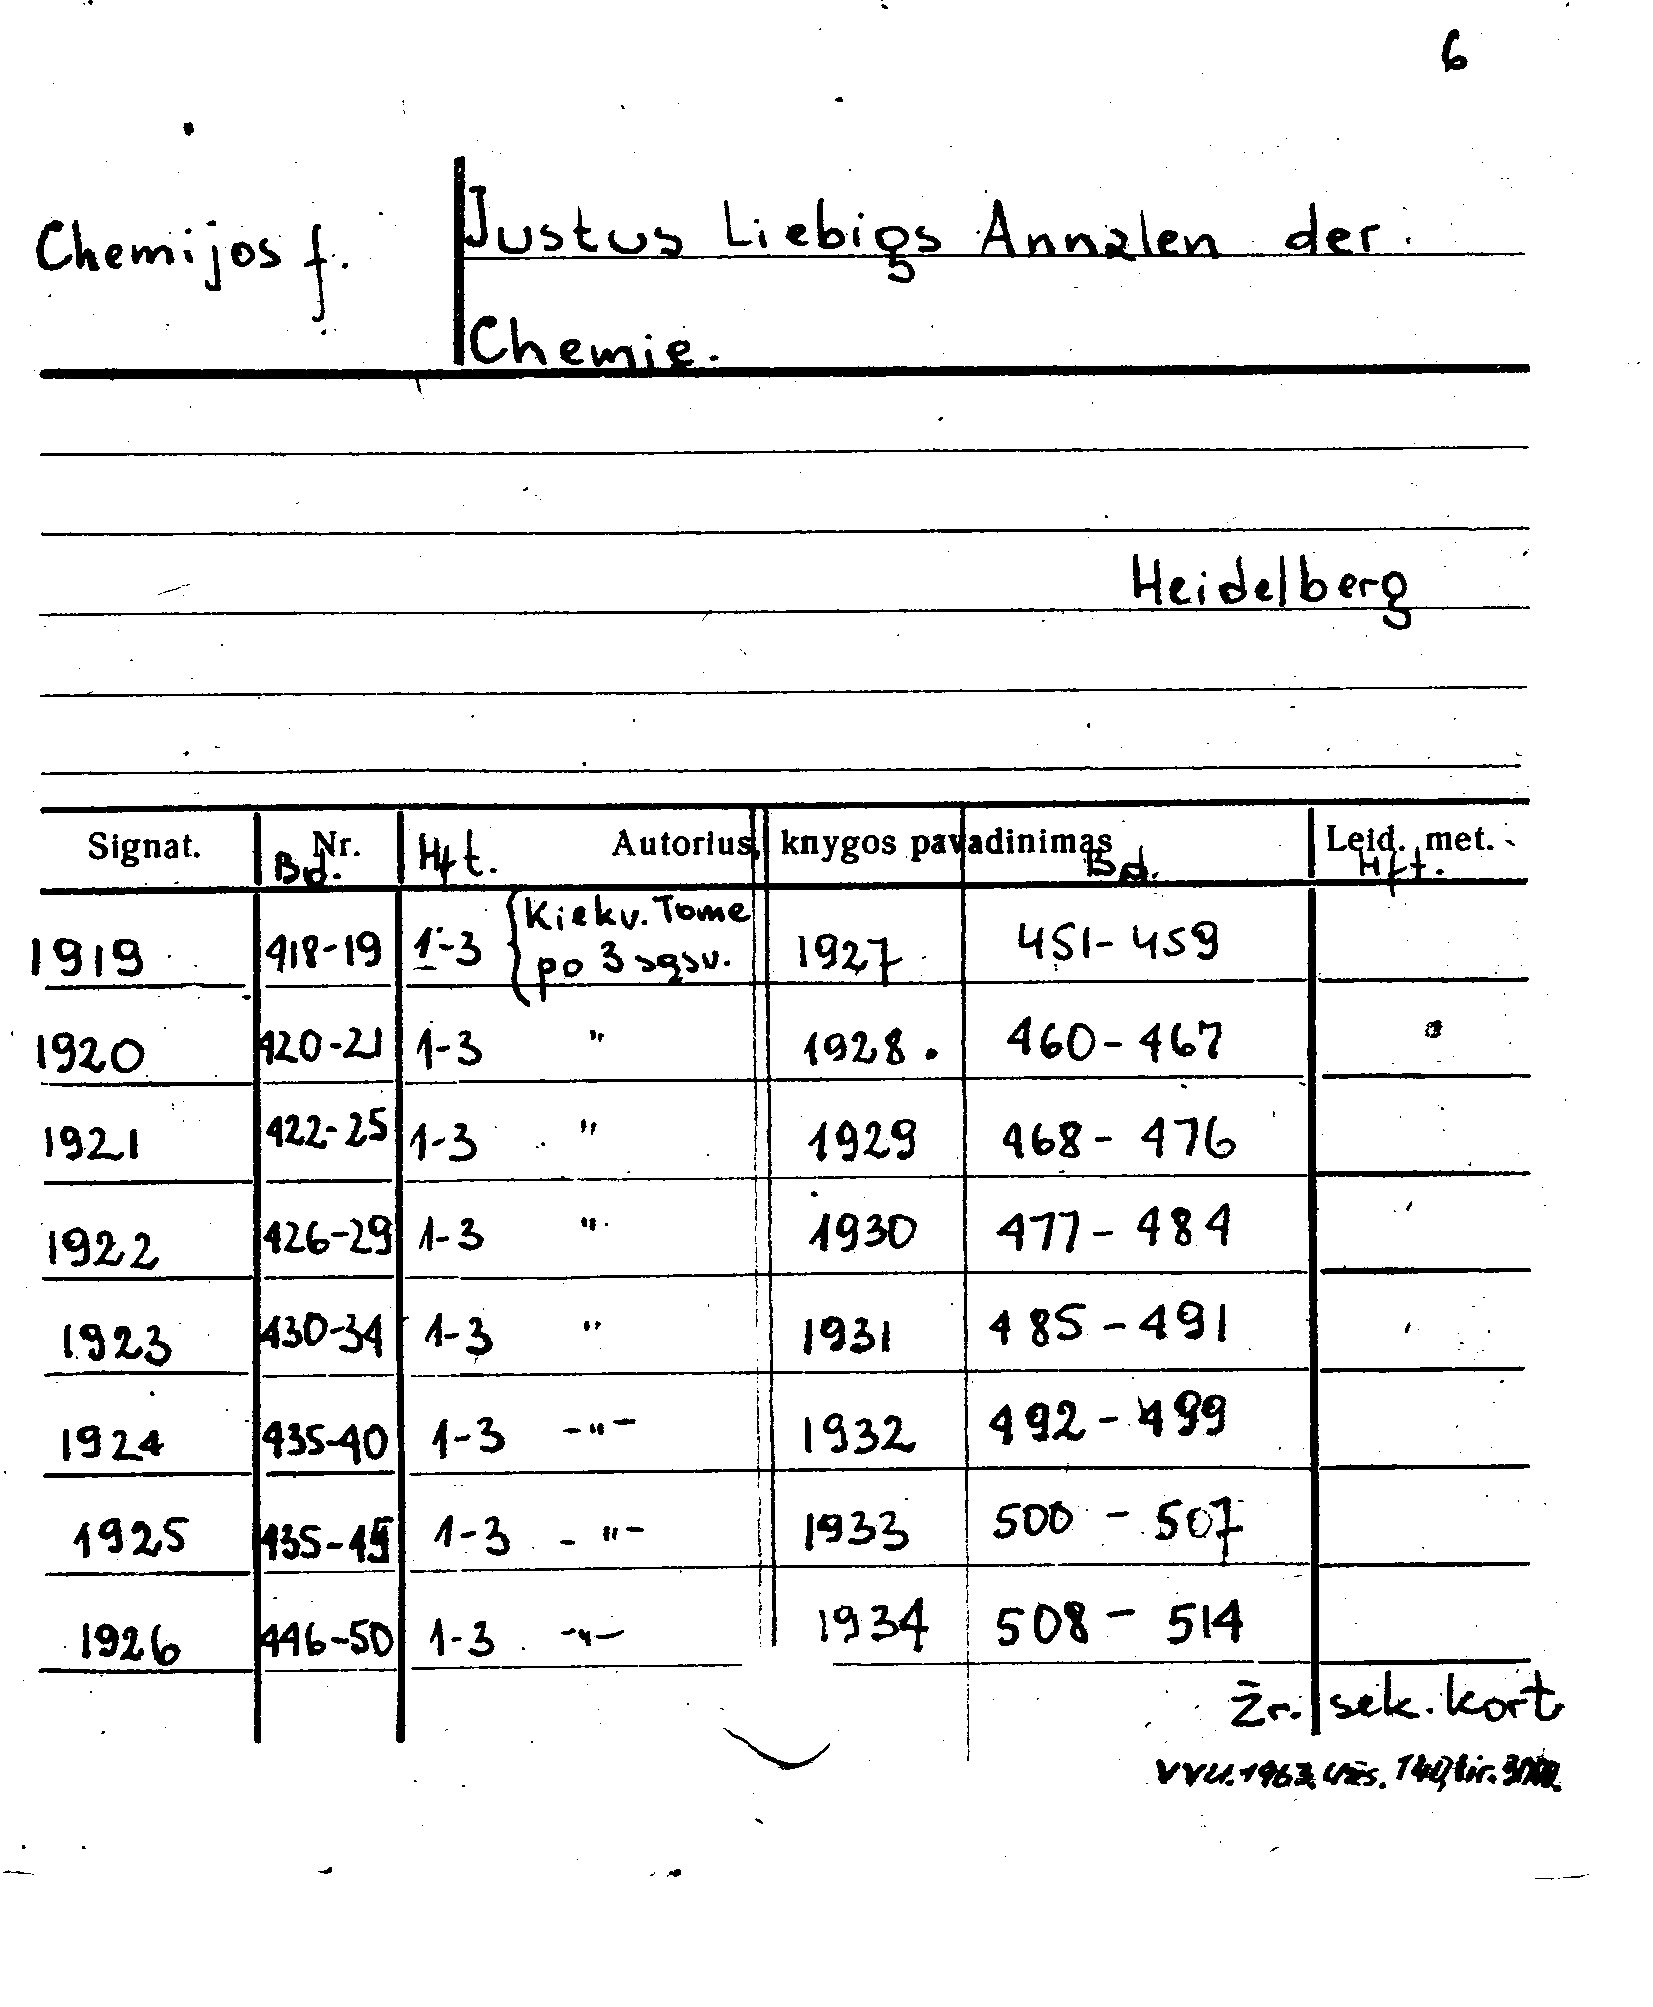 6
Chemijos f.
Justus Liebigs Annalen der
Chemie.
Heidelberg
Signat. Nr. Autorius, knygos pavadinimas Leid. met.
Bd. Hft. Bd. Hft.
1919 418-19 1-3 {Kiekv. Tome po 3 sąsv. 1927 451-459
1920 420-21 1-3 " 1928. 460-467
1921 422-25 1-3 " 1929 468-476
1922 426-29 1-3 " 1930 477-484
1923 430-34 1-3 " 1931 485-491
1924 435-40 1-3 -"- 1932 492-499
1925 435-45 1-3 -"- 1933 500-507
1926 446-50 1-3 -"- 1934 508-514
Žr. sek. kort
VVU. 1963. Užs. tir.